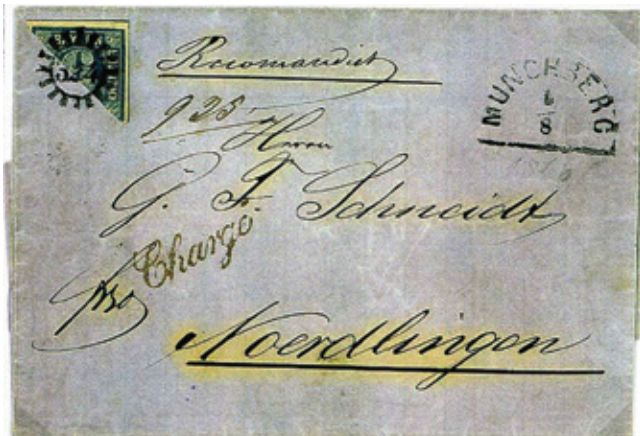 Recomandirt
MÜNCHBERG
1
8
925
Herrn
G. F. Schmeidt
Chargé.
fro
Noerdlingen